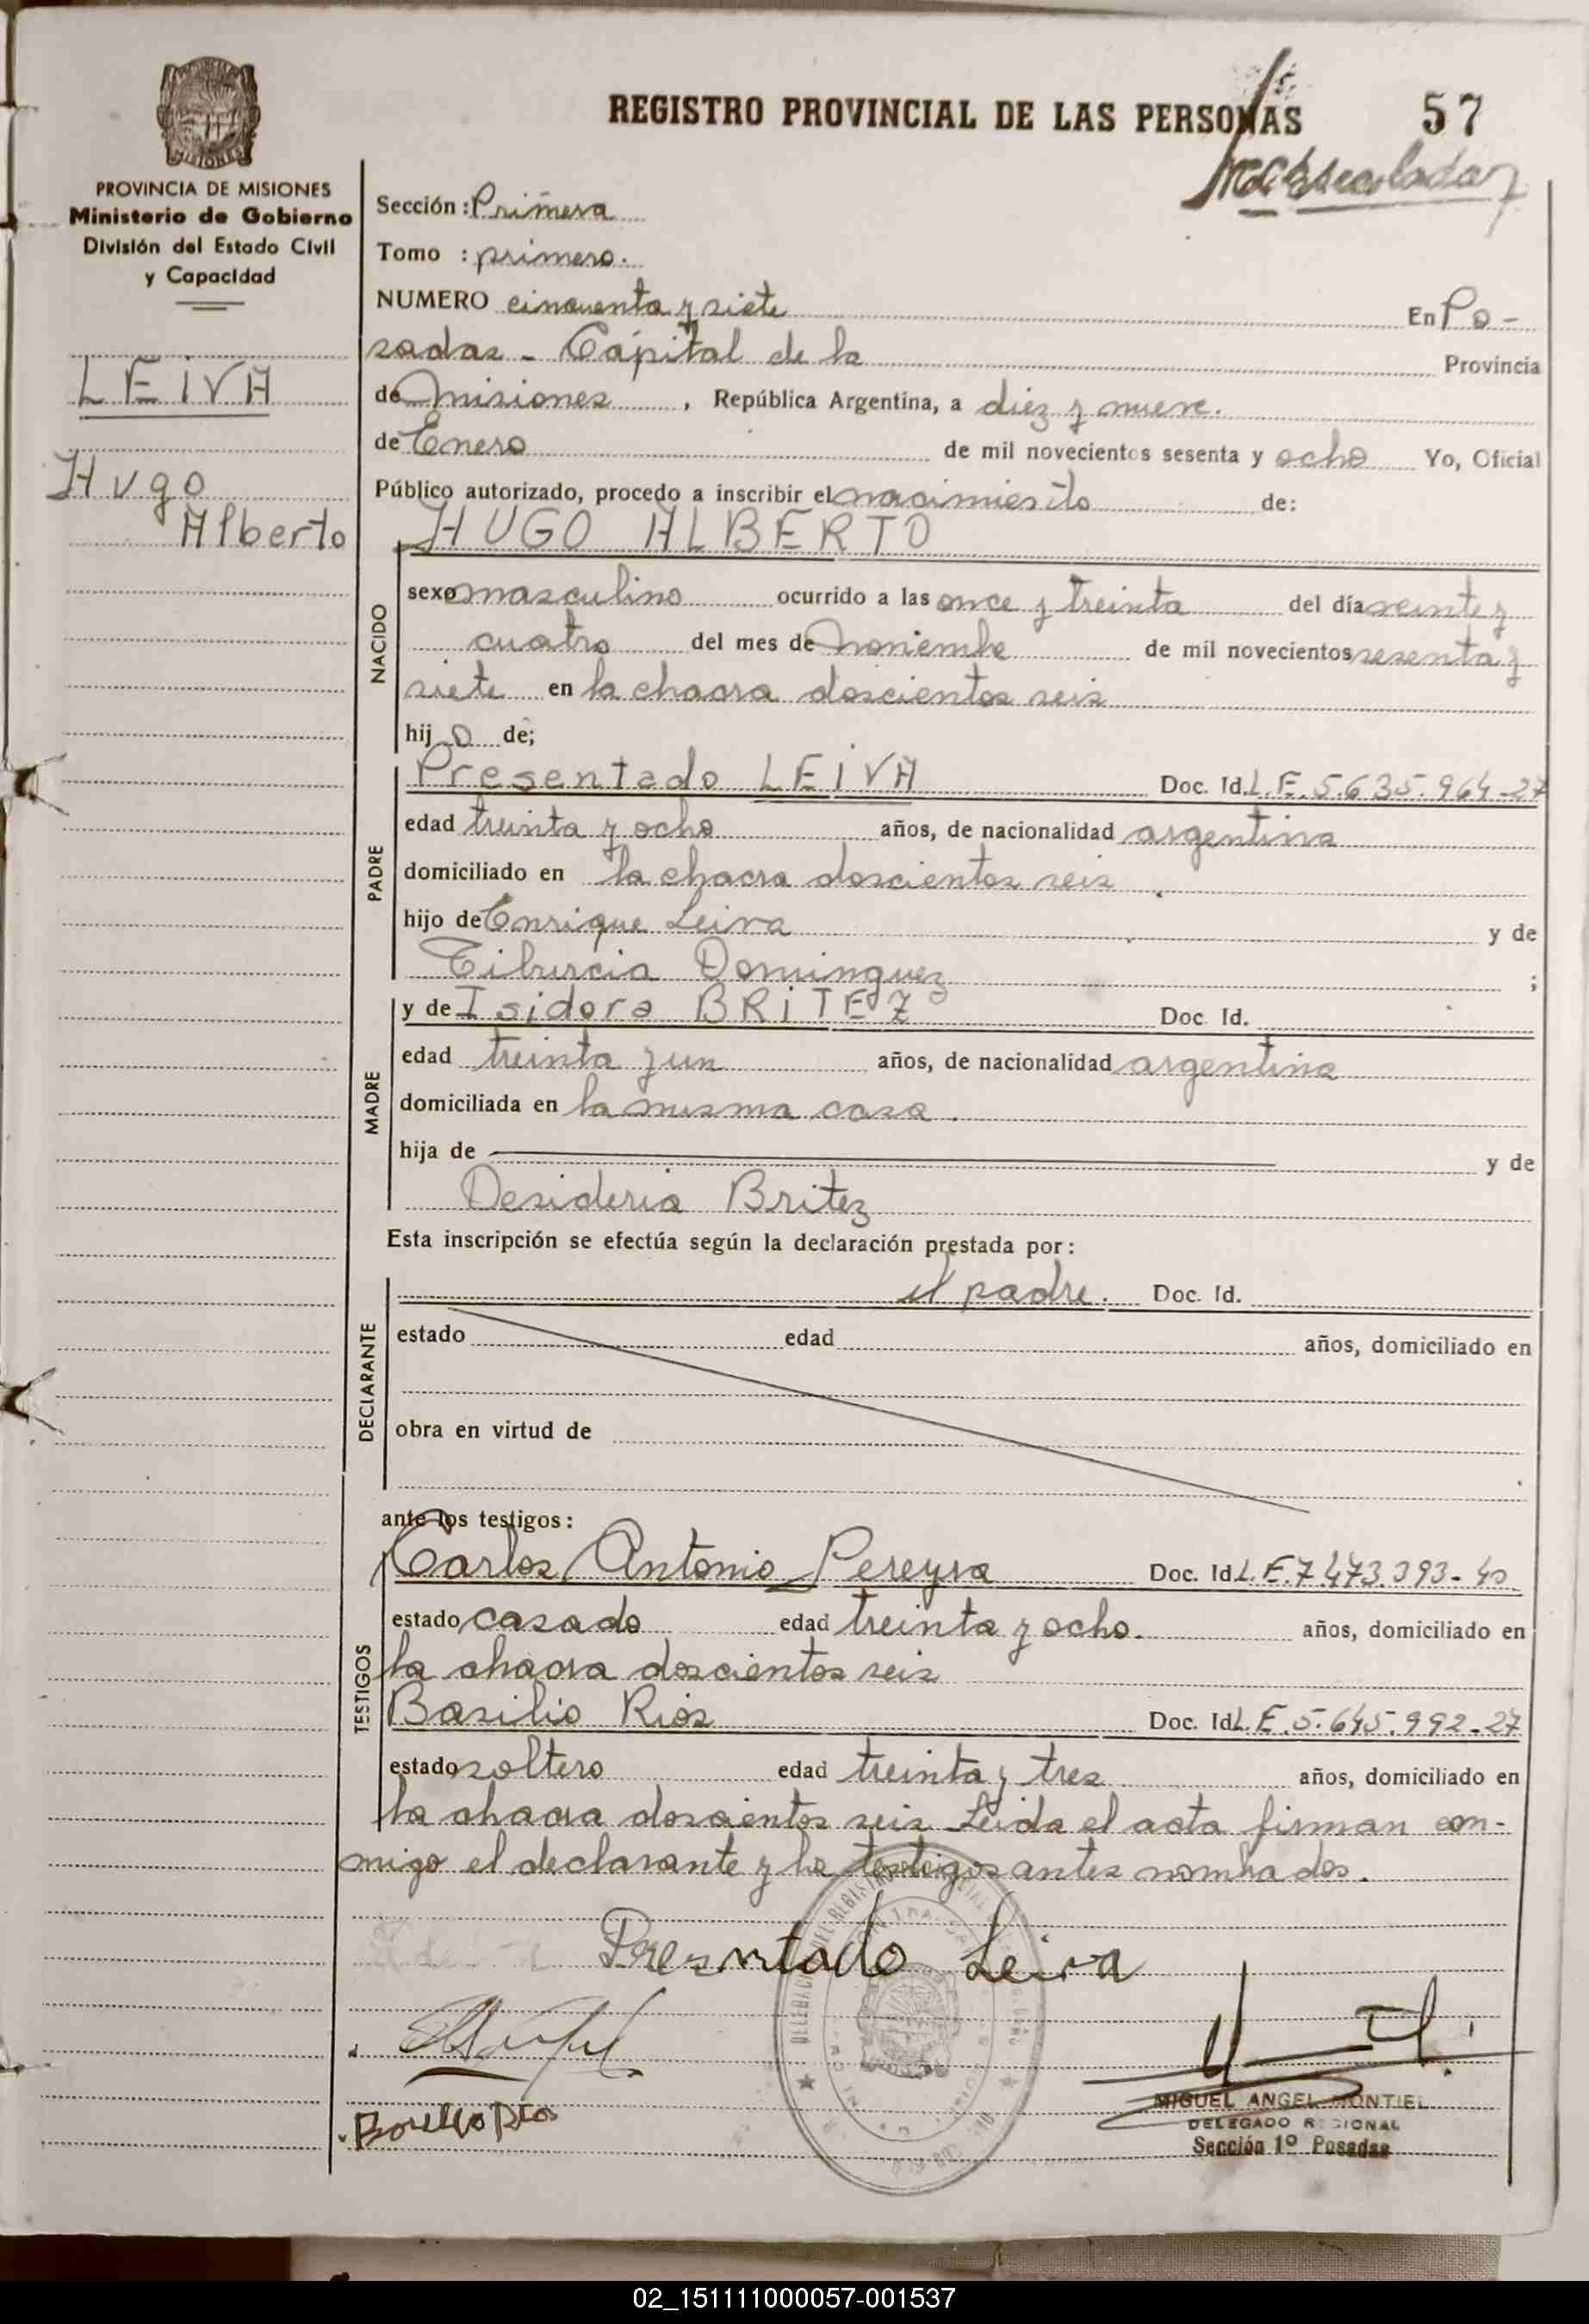 REGISTRO PROVINCIAL DE LAS PERSONAS 57
PROVINCIA DE MISIONES
Ministerio de Gobierno
División del Estado Civil
y Capacidad
LEIVA
Hugo
Alberto
Sección: Primera
Tomo : primero.
NUMERO cincuenta y siete En Po-
sadas - Capital de la Provincia
de Misiones, República Argentina, a diez y nueve.
de Enero de mil novecientos sesenta y ocho Yo, Oficial
Público autorizado, procedo a inscribir el nacimiento de:
HUGO ALBERTO
NACIDO
sexo masculino ocurrido a las once y treinta del día veinte y
cuatro del mes de Noviembre de mil novecientos sesenta y
siete en la chacra doscientos seis
hij o de;
PADRE
Presentado LEIVA Doc. Id. L.E. 5.635.964-27
edad treinta y ocho años, de nacionalidad argentina
domiciliado en la chacra doscientos seis
hijo de Enrique Leiva y de
Tiburcia Dominguez ;
MADRE
y de Isidora BRITEZ Doc. Id.
edad treinta y un años, de nacionalidad argentina
domiciliada en la misma casa.
hija de y de
Desideria Britez
Esta inscripción se efectúa según la declaración prestada por:
DECLARANTE
el padre. Doc. Id.
estado edad años, domiciliado en
obra en virtud de
ante los testigos:
TESTIGOS
Carlos Antonio Pereyra Doc. Id. L.E. 7.473.393-40
estado casado edad treinta y ocho. años, domiciliado en
la chacra doscientos seis
Basilio Rios Doc. Id. L.E. 5.645.992-27
estado soltero edad treinta y tres años, domiciliado en
la chacra doscientos seis Leida el acta firman con-
migo el declarante y los testigos antes nombrados.
Presntado Leiva
MIGUEL ANGEL MONTIEL
DELEGADO REGIONAL
Sección 1º Posadas
02_151111000057-001537